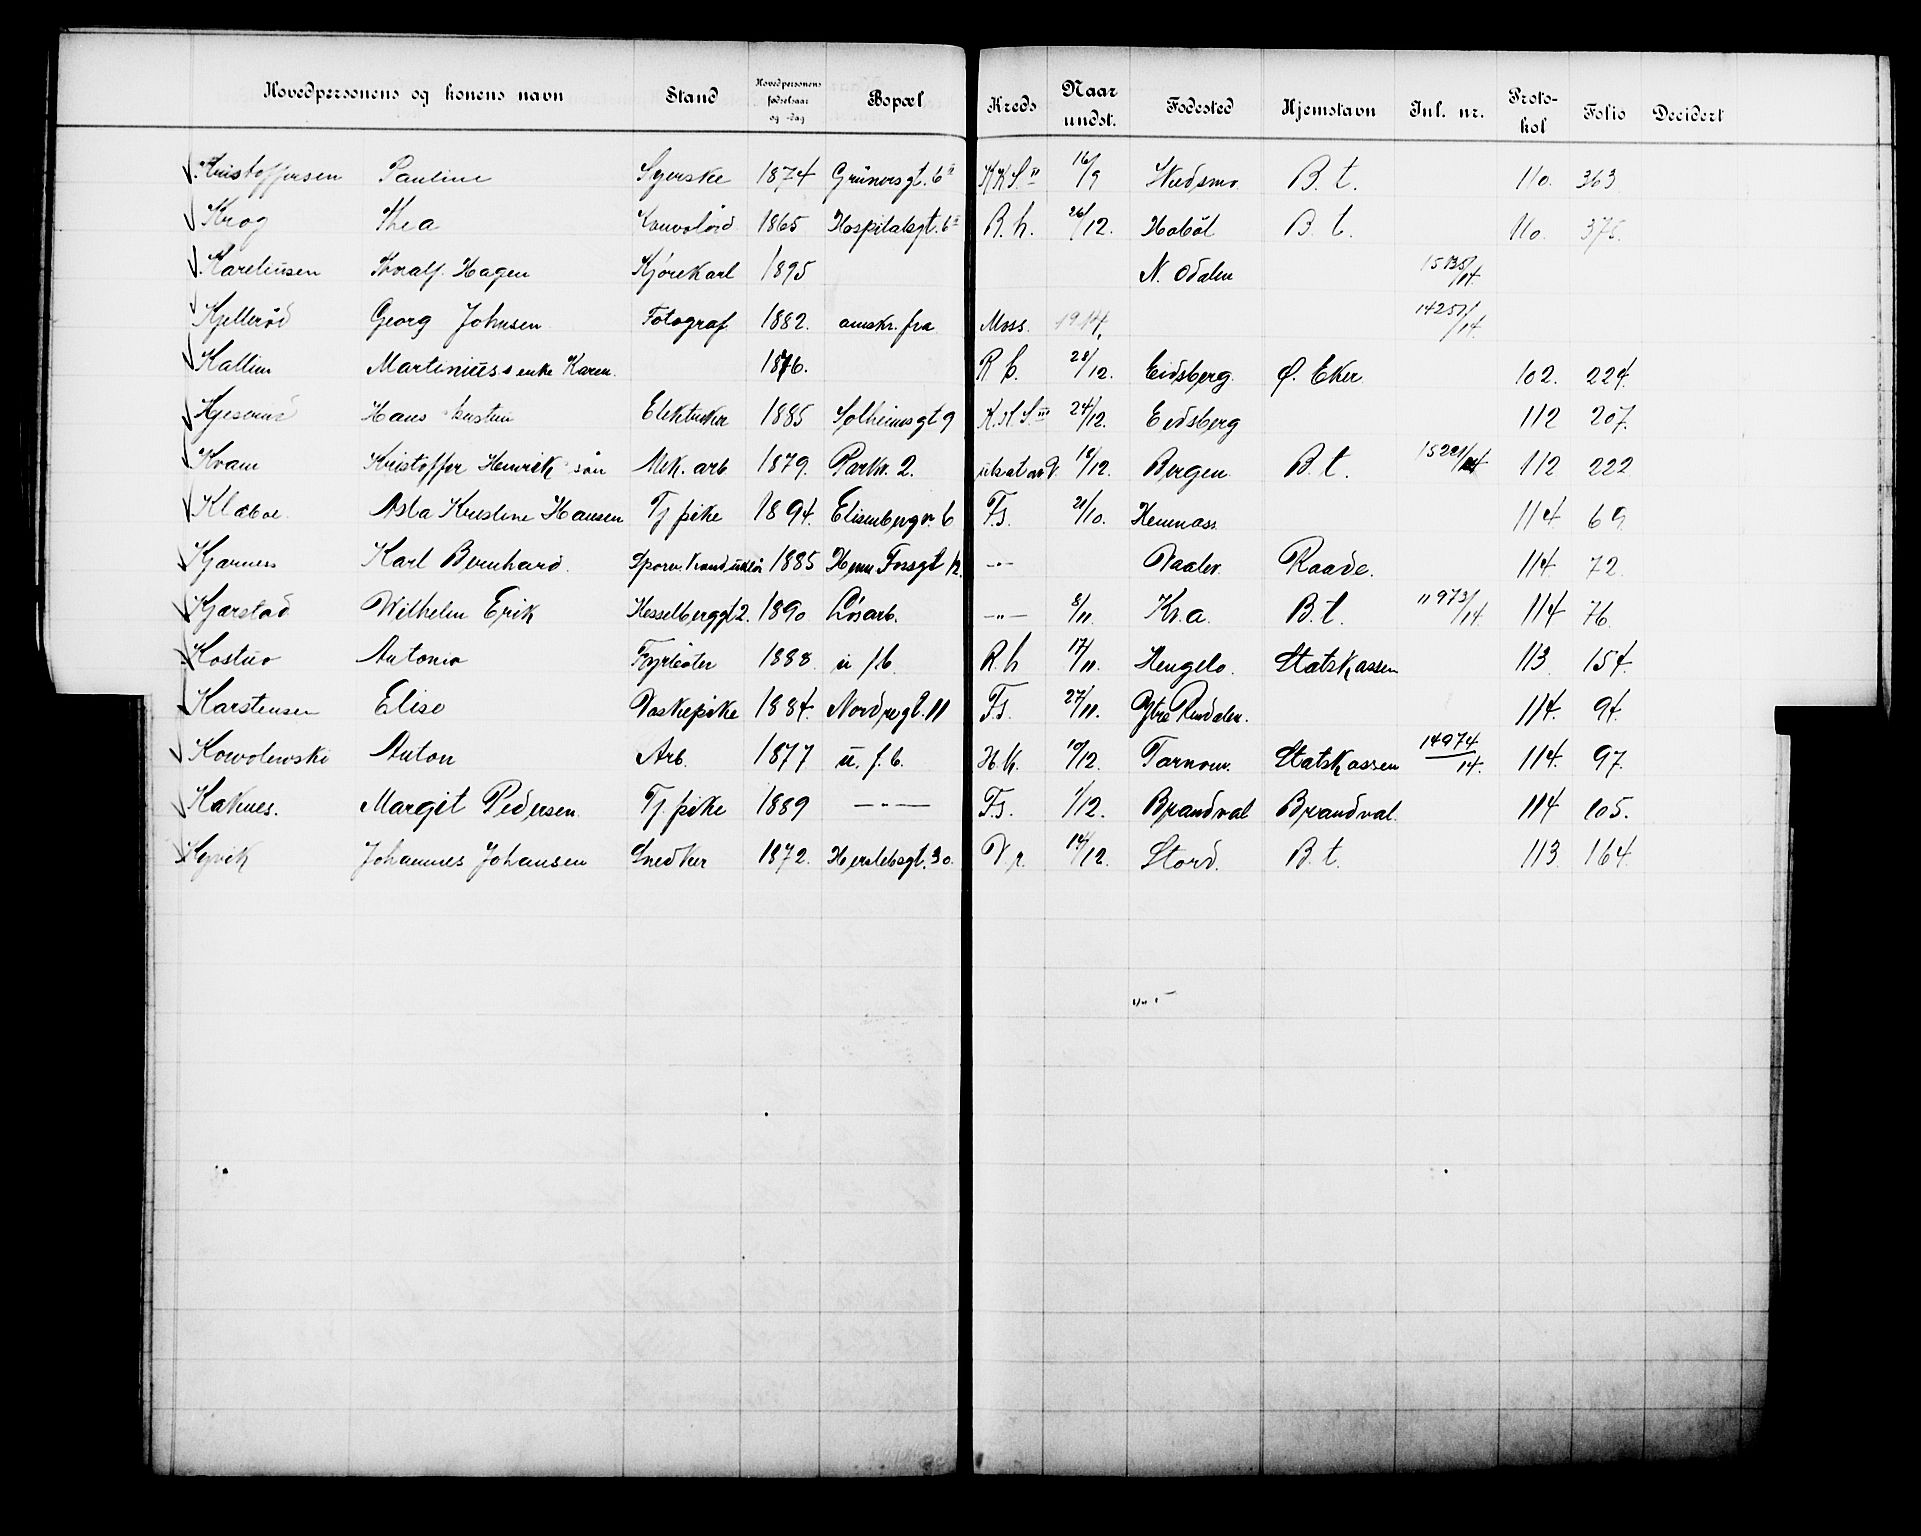 Hovedpersonens og konens navn Stand Hovedpersonens fødselsaar og -dag Bopæl Kreds Naar undst. Fødested Hjemstavn Inl. nr. Proto-kol Folio Decidert
Kristoffersen Pauline Syerske 1874 Grünersgt. 6 16/9 B. t. 110. 363
Krog Thea 1865 Hospitalsgt. 6 R. h. 26/12. Hobøl B. t. 110. 376.
Kareliussen Thoralf Hagen Kjørekarl 1895 N. Odalen 15135/14.
Kjellerød Georg Johnsen Fotograf 1882. omskr. fra Moss. 1914. 14257/14.
Martinius s enke Karen. 1876. 28/12. Eidsberg. Ø. Eker 102. 224.
Hans Elektriker 1885 Solheimsgt 9 24/12. Eidsberg 112 207.
Kvam Kristoffer Henrik søn Mek. arb 1879. Parkv. 2. 12. Bergen B. t. 15221/14 112 222
Klæboe. Asta Kristine Hansen Tj. pike 1894. Elisenbergv. 6 F.s. 21/10. Hemnæs. 114 69
Kjærnes Karl Bernhard. 1885 Fossgt 12. -"- Vaaler. Raade. 114 72.
Kjærstad Wilhelm Erik Hesselberggt 2. 1890 Løsarb. -"- 8/11. Kr.a. B. t. 11973/14. 114 76.
Antonio Fyrbøter 1888. u. f. b. R. h 17/11. Hengelo. Statskassen 113 154.
Karstensen Elise Vaskepike 1884. Nordregt. 11 F.s. 27/11. Ytre Rendalen. 114. 94.
Kowolewski Anton Arb. 1877 u. f. b. H. K. 10/12. Tarnow. Statskassen 14974/14. 114. 97.
Kaknes. Margit Pedersen. Tj. pike 1889 -"- F.s. 1/12. Brandval Brandval. 114 105.
Kyvik Johannes Johansen Snedker 1872. Herslebsgt. 30. V. 14/12. Stord. B. t. 113. 164.